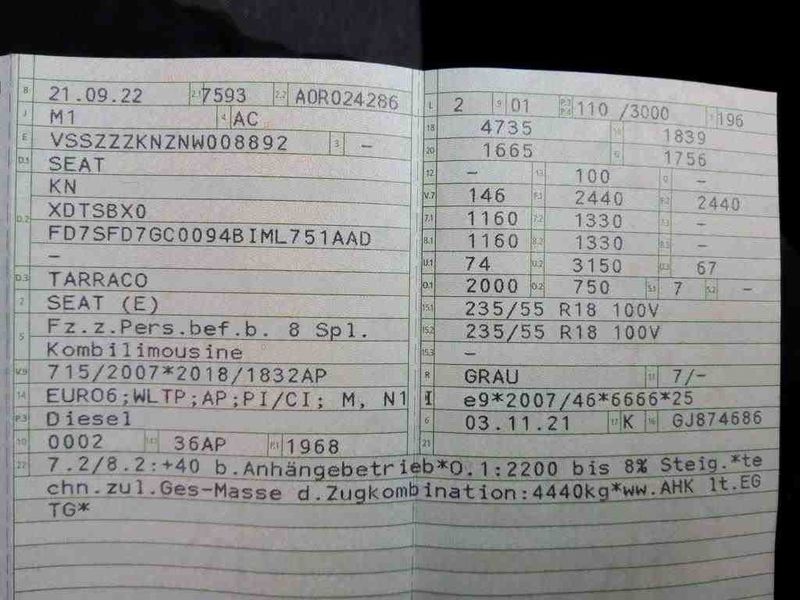 B 21.09.22 2.1 7593 2.2 AOR024286
J M1 4 AC
E VSSZZZKNZNW008892 3 –
D.1 SEAT
KN
D.2 XDTSBX0
FD7SFD7GC0094BIML751AAD
–
D.3 TARRACO
2 SEAT (E)
5 Fz.z.Pers.bef.b. 8 Spl.
Kombilimousine
V.9 715/2007*2018/1832AP
14 EURO6;WLTP;AP;PI/CI; M, N1 I
P.3 Diesel
10 0002 14.1 36AP P.1 1968
L 2 9 01 P.2 P.4 110 /3000 T 196
18 4735 19 1839
20 1665 G 1756
12 – 13 100 Q –
V.7 146 F.1 2440 F.2 2440
7.1 1160 7.2 1330 7.3 –
8.1 1160 8.2 1330 8.3 –
U.1 74 U.2 3150 U.3 67
O.1 2000 O.2 750 S.1 7 S.2 –
15.1 235/55 R18 100V
15.2 235/55 R18 100V
15.3 –
R GRAU 11 7/-
K e9*2007/46*6666*25
6 03.11.21 17 K 16 GJ874686
21
22 7.2/8.2:+40 b.Anhängebetrieb*O.1:2200 bis 8% Steig.*te
chn.zul.Ges-Masse d.Zugkombination:4440kg*ww.AHK lt.EG
TG*